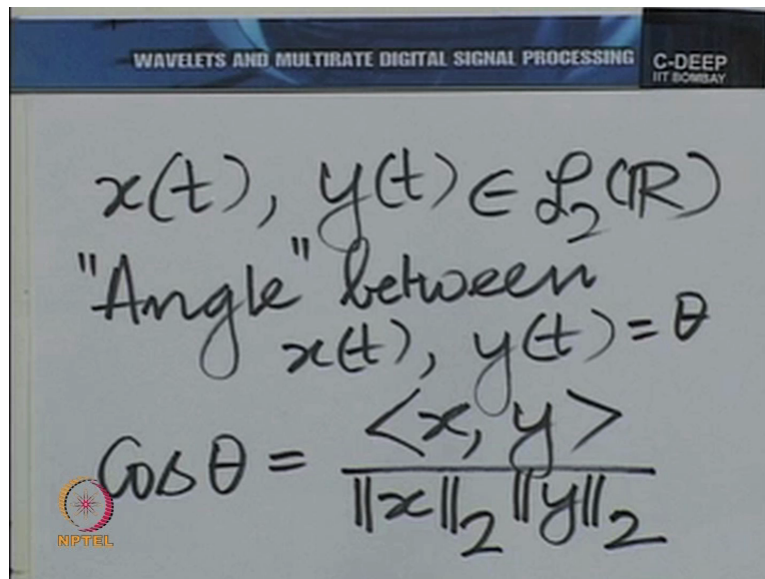 WAVELETS AND MULTIRATE DIGITAL SIGNAL PROCESSING
C-DEEP
IIT BOMBAY
x(t), y(t) ∈ ℒ₂(ℝ)
"Angle" between
x(t), y(t) = θ
Cos θ = <x, y> / ‖x‖₂ ‖y‖₂
NPTEL